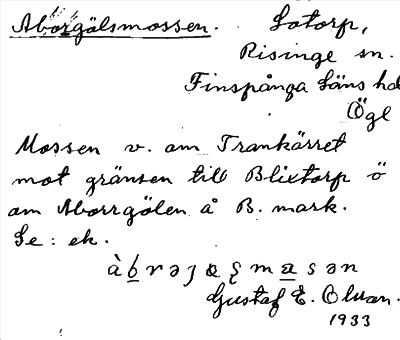 Aborgölsmossen. Sotorp,
Risinge sn.
Finspånga läns hd
Ögl
Mossen v. om Trankärret
mot gränsen till Blixtorp ö
om Aborrgölen å B. mark.
Se: ek.
Gustaf E. Olsson.
1933